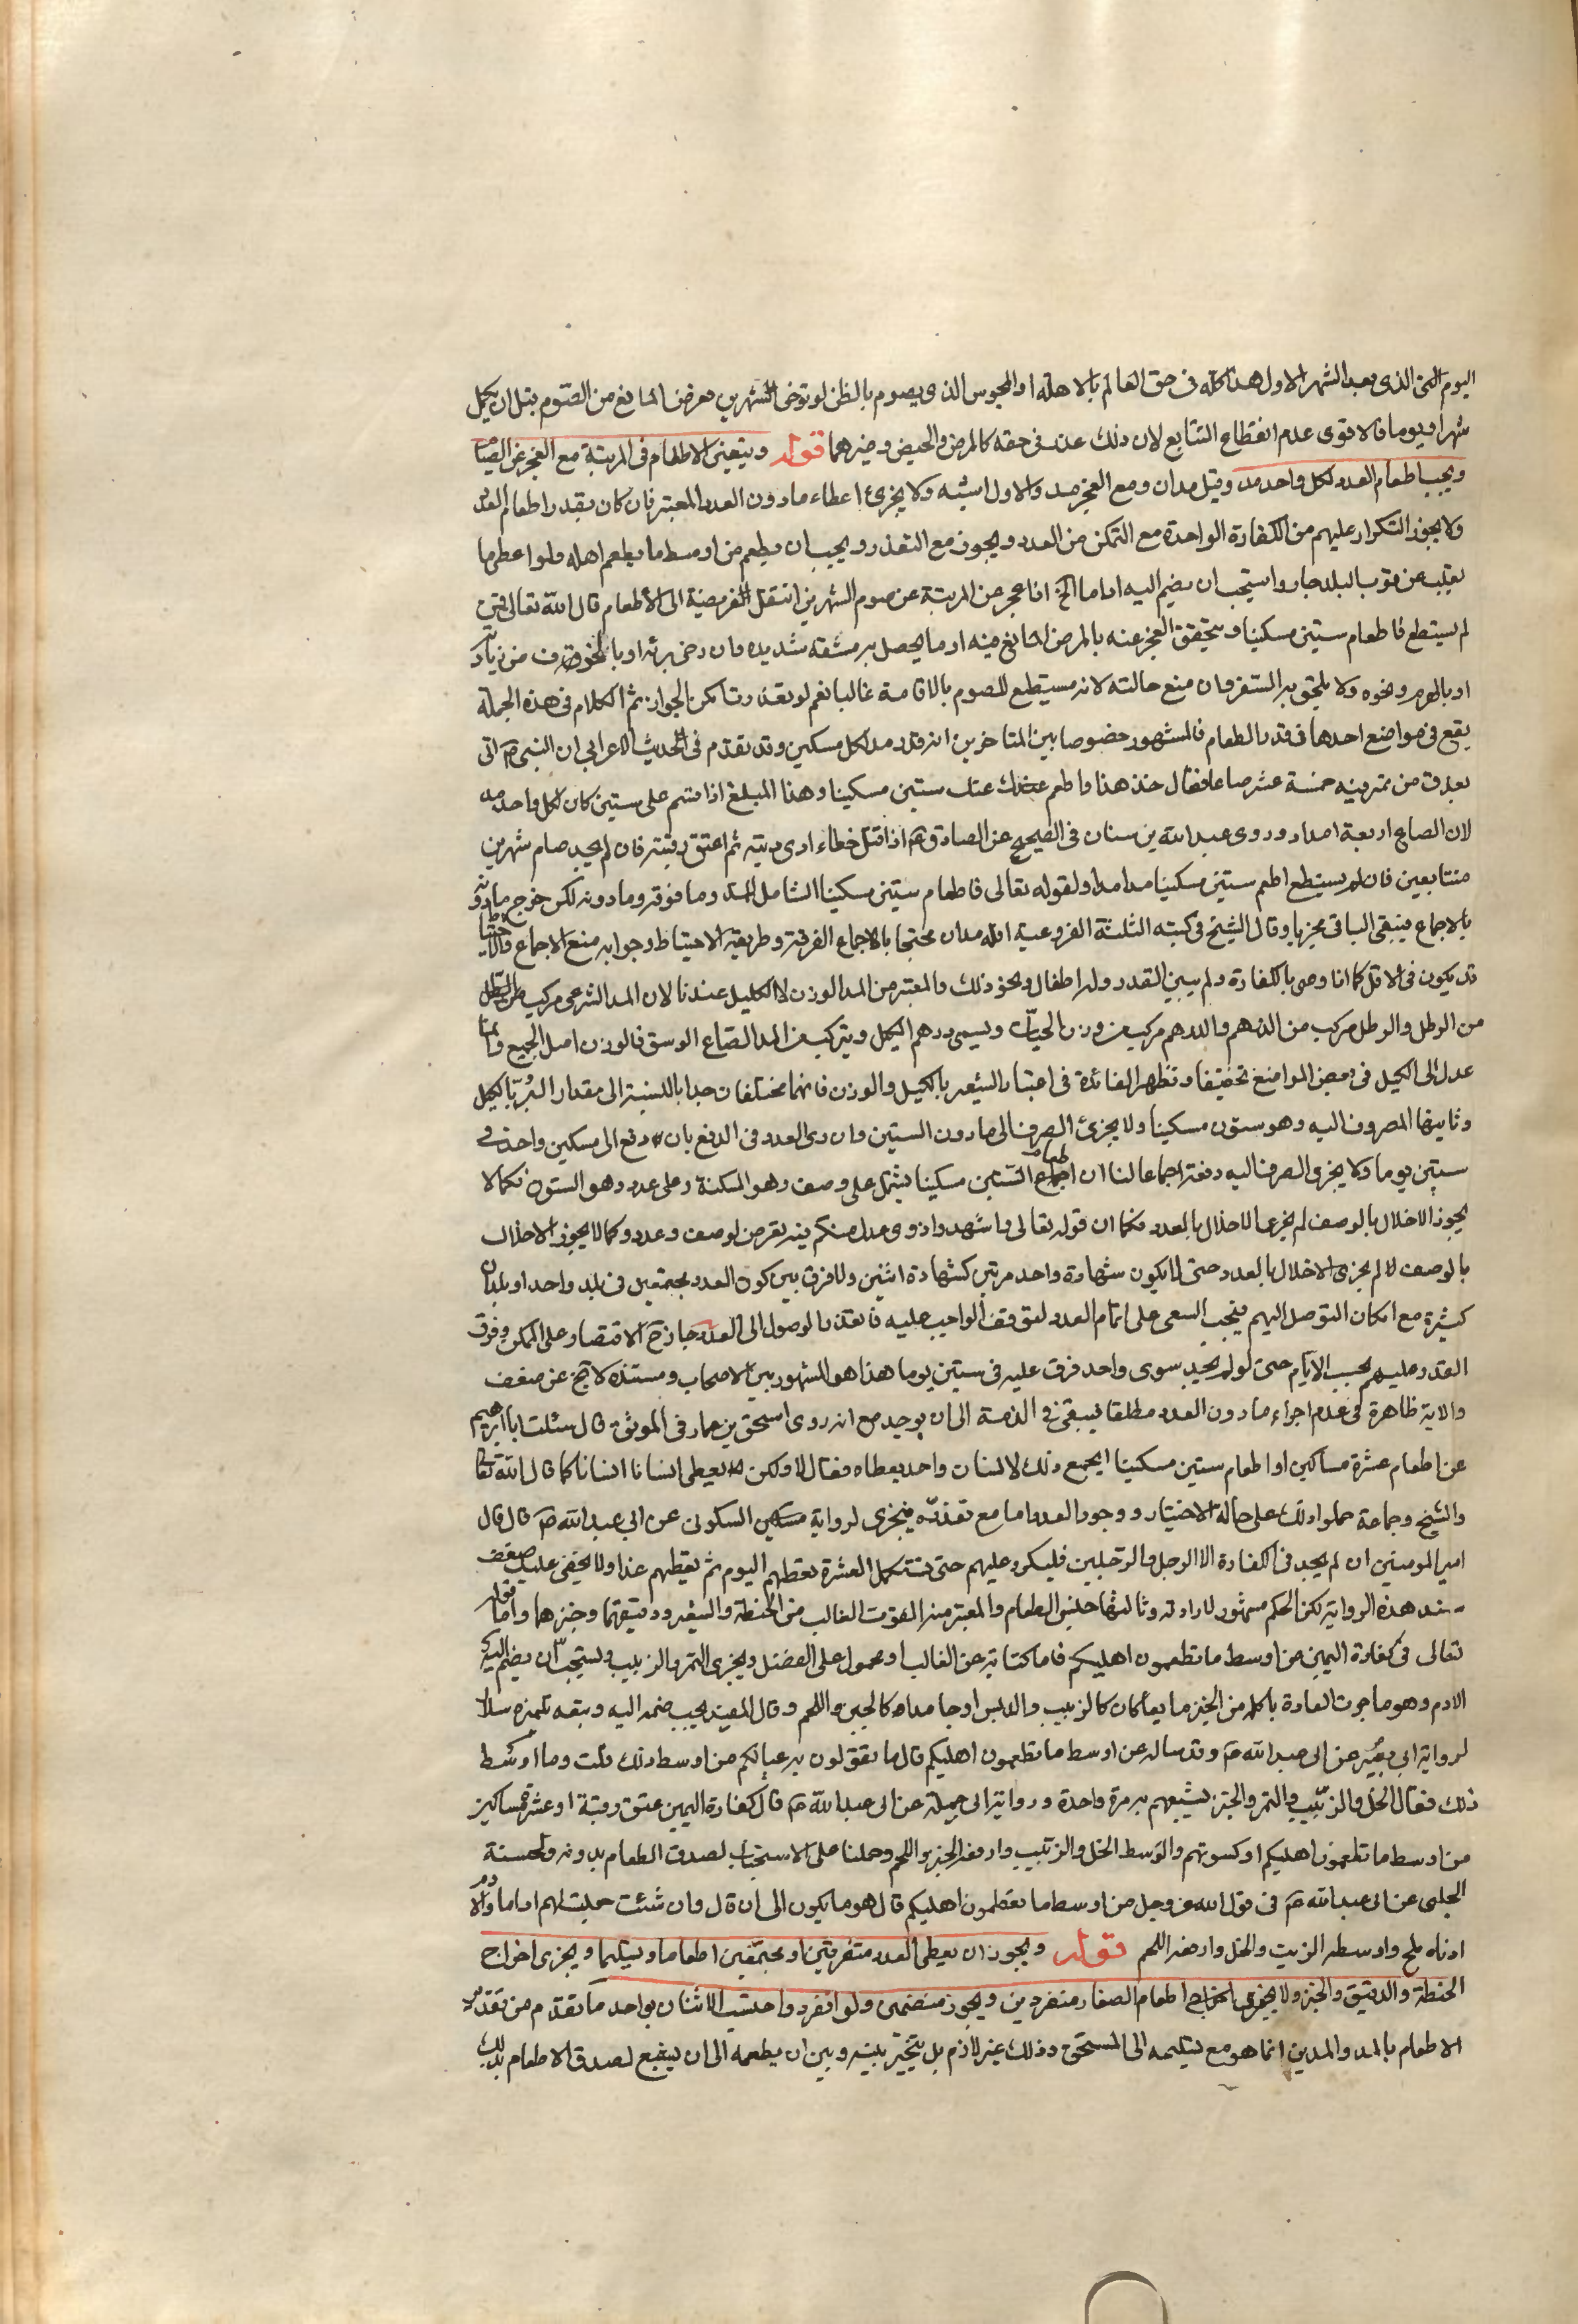 اليوم الذى بعد الشهر الاول هذا كله فى حق العالم بالاهلة او المحبوس الذى يصوم بالظن لو توخى الشهرين فعرض المانع من الصوم قبل ان يكمل
شهرا ويوما فالاقوى عدم انقطاع التتابع لان ذلك عذر فى حقه كالمرض والحيض وغيرهما قوله ويتعين الاطعام فى المرتبة مع العجز عن الصيام
ويجب اطعام العدد لكل واحد مد وقيل مدان ومع العجز مد والاول اشبه ولا يجزئ اعطاء مادون العدد المعتبر فان كان بقدر اطعام العدد
ولا يجوز التكرار عليهم من الكفارة الواحدة مع التمكن من العدد ويجوز مع التعذر ويجب ان يطعم من اوسط ما يطعم اهله ولو اعطى مما
يغلب من قوت البلد جاز واستحب ان يضم اليه اداما الخ اذا عجز من المرتبة عن صوم الشهرين انتقل الفريضة الى الاطعام قال الله تعالى فمن
لم يستطع فاطعام ستين مسكينا ويتحقق العجز عنه بالمرض المانع منه او ما يحصل به مشقة شديده وان رجى برئه او بالخوف من زيادته
او بالهرم ونحوه ولا يلحق به السفر وان منع حالته لانه مستطيع للصوم بالاقامة غالبا نعم لو تعذرت امكن الجواز ثم الكلام فى هذه الجملة
يقع فى مواضع احدها فى قدر الطعام فالمشهور خصوصا بين المتاخرين انه قدر مد لكل مسكين وقد تقدم فى الحديث الاعرابى ان النبى ص اتى
بعذق من تمر فيه خمسة عشر صاعا فقال خذ هذا واطعم عنك ستين مسكينا وهذا المبلغ اذا قسم على ستين كان لكل واحد مد
لان الصاع اربعة امداد وروى عبد الله بن سنان فى الصحيح عن الصادق ع اذا قتل خطاء ادى ديته ثم اعتق رقبة فان لم يجد صام شهرين
متتابعين فان لم يستطع اطعم ستين مسكينا مدا مدا ولقوله تعالى فاطعام ستين مسكينا الشامل للمد وما فوقه وما دونه لكن خرج ما دونه
بالاجماع فيبقى الباقى مجزيا وقال الشيخ فى كتبه الثلثة الفروعية انه مدان محتجا بالاجماع الفرقة وطريقة الاحتياط وجوابه منع الاجماع والاحتياط
قد يكون فى الاقل كما اذا وصى بالكفارة ولم يبين القدر وله اطفال ونحو ذلك والمعتبر من المد الوزن لا الكيل عندنا لان المد الشرعى مركب
من الرطل والرطل مركب من الدرهم والدرهم مركب من وزن الحبات ويسمى درهم الكيل ويتركب من المد الصاع الوسق فالوزن اصل الجميع وانما
عدل الى الكيل فى بعض المواضع تخفيفا وتظهر الفائدة فى اعتبار الشعير بالكيل والوزن فانهما مختلفان جدا بالنسبة الى مقدار البر بالكيل
وثانيها المصروف اليه وهو ستون مسكينا ولا يجزئ الصرف الى ما دون الستين وان رعى العدد فى الدفع بان دفع الى مسكين واحد فى
ستين يوما ولا يجزى الصرف اليه دفعة اجماعا لنا ان اطعام الستين مسكينا يشتمل على وصف وهو المسكنة وعلى عدد وهو الستون فكما لا
يجوز الاخلال بالوصف لم يجز الاخلال بالعدد فكما ان قوله تعالى واشهدوا ذوى عدل منكم فيه تعرض لوصف وعدد وكما لا يجوز الاخلال
بالوصف لا لم يجزى الاخلال بالعدد حتى لا يكون شهادة واحد مرتين كشهادة اثنين ولا فرق بين كون العدد مجتمعين فى بلد واحد او بلدان
كثيرة مع امكان التوصل اليهم فيجب السعى على اتمام العدد لتوقف الواجب عليه فان تعذر الوصول الى العدد جاز ح الاقتصار على الممكن وفرق
العدد عليهم بحسب الايام حتى لو لم يجد سوى واحد فرق عليه فى ستين يوما هذا هو المشهور بين الاصحاب ومستنده لا يخ عن ضعف
والاية ظاهرة فى عدم اجزاء ما دون العدد مطلقا فيبقى فى الذمة الى ان يوجد مع انه روى اسحق بن عمار فى الموثق قال سئلت ابا ابرهيم
عن اطعام عشرة مساكين او اطعام ستين مسكينا ايجمع ذلك لانسان واحد يعطاه فقال لا ولكن يعطى انسانا انسانا كما قال الله تعالى
والشيخ وجماعة حملوا ذلك على حالة الاختيار ووجود العدد اما مع تعذره فيجزى لرواية السكونى عن ابى عبد الله ع قال قال
امير المومنين ان لم يجد فى الكفارة الا الرجل والرجلين فليكرر عليهم حتى تستكمل العشرة يعطيهم اليوم ثم يعطيهم غدا ولا يخفى عليك ضعف
سند هذه الرواية لكن الحكم مشهور لا راد له وثالثها جنس الطعام والمعتبر منه القوت الغالب من الحنطة والشعير ودقيقهما وخبزهما واما قوله
تعالى فى كفارة اليمين من اوسط ما تطعمون اهليكم فاما كناية عن الغالب او محمول على الفضل ويجزى التمر والزبيب ويستحب ان يضم اليه
الادم وهو ما جرت العادة باكله من الخبز مايعا كان كالزيت والدبس او جامدا كالجبن واللحم وقال المفيد يجب ضمه اليه وتبعه تلميذه سلار
لرواية ابى بصير عن ابى عبد الله ع وقد ساله عن اوسط ما تطعمون اهليكم قال ما تقوتون به عيالكم من اوسط ذلك قلت وما اوسط
ذلك فقال الخل والزيت والتمر والخبز تشبعهم به مرة واحدة ورواية ابى جميلة عن ابى عبد الله ع قال كفارة اليمين عتق رقبة او عشرة مساكين
من اوسط ما تطعمون اهليكم او كسوتهم والوسط الخل والزيت وارفعه الخبز واللحم وحملنا على الاستحباب لصدق الطعام بدونه ولحسنة
الحلبى عن ابى عبد الله ع فى قول الله عز وجل من اوسط ما تطعمون اهليكم قال هو ما يكون الى ان قال وان شئت جعلت لهم اداما والادم
ادناه ملح واوسطه الزيت والخل وارفعه اللحم قوله ويجوز ان يعطى العدد متفرقين او مجتمعين اطعاما وتسليما ويجزى اخراج
الحنطة والدقيق والخبز ولا يجزى اطعام الصغار منفردين ويجوز منضمين ولو انفردوا احتسب الاثنان بواحد ما تقدم من تقدير
الاطعام بالمد والمدين انما هو مع تسليمه الى المستحق وذلك غير لازم بل يتخير بينه وبين ان يطعمه الى ان يشبع لصدق الاطعام بذلك